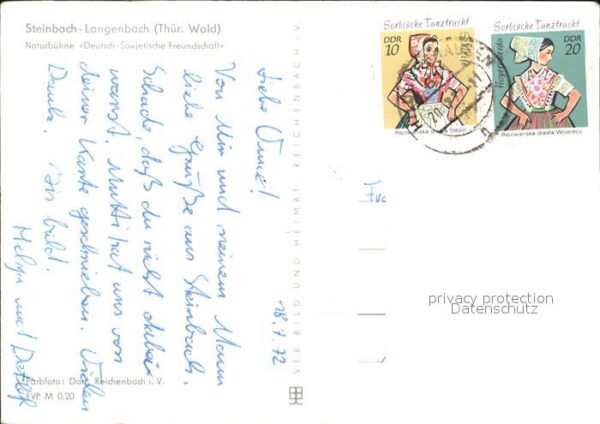 Steinbach-Langenbach (Thür. Wald)
Naturbühne »Deutsch-Sowjetische Freundschaft«
Sorbische Tanztracht
DDR
10
Schleife
Rejowanska drasta Slepo
Sorbische Tanztracht
DDR
20
Hoyerswerda
Rejowanska drasta Wojerecy
18.7.72
Liebe
Von Mir und meinem Mann
liebe Grüße aus Steinbach.
Schade, daß du nicht dabei
warst. Mutti hat uns von
deiner Karte geschrieben. Vielen
Dank.
Helga und Detlef
VEB BILD UND HEIMAT REICHENBACH I. V.
privacy protection
Datenschutz
Farbfoto: Darr, Reichenbach i. V.
EVP M 0.20